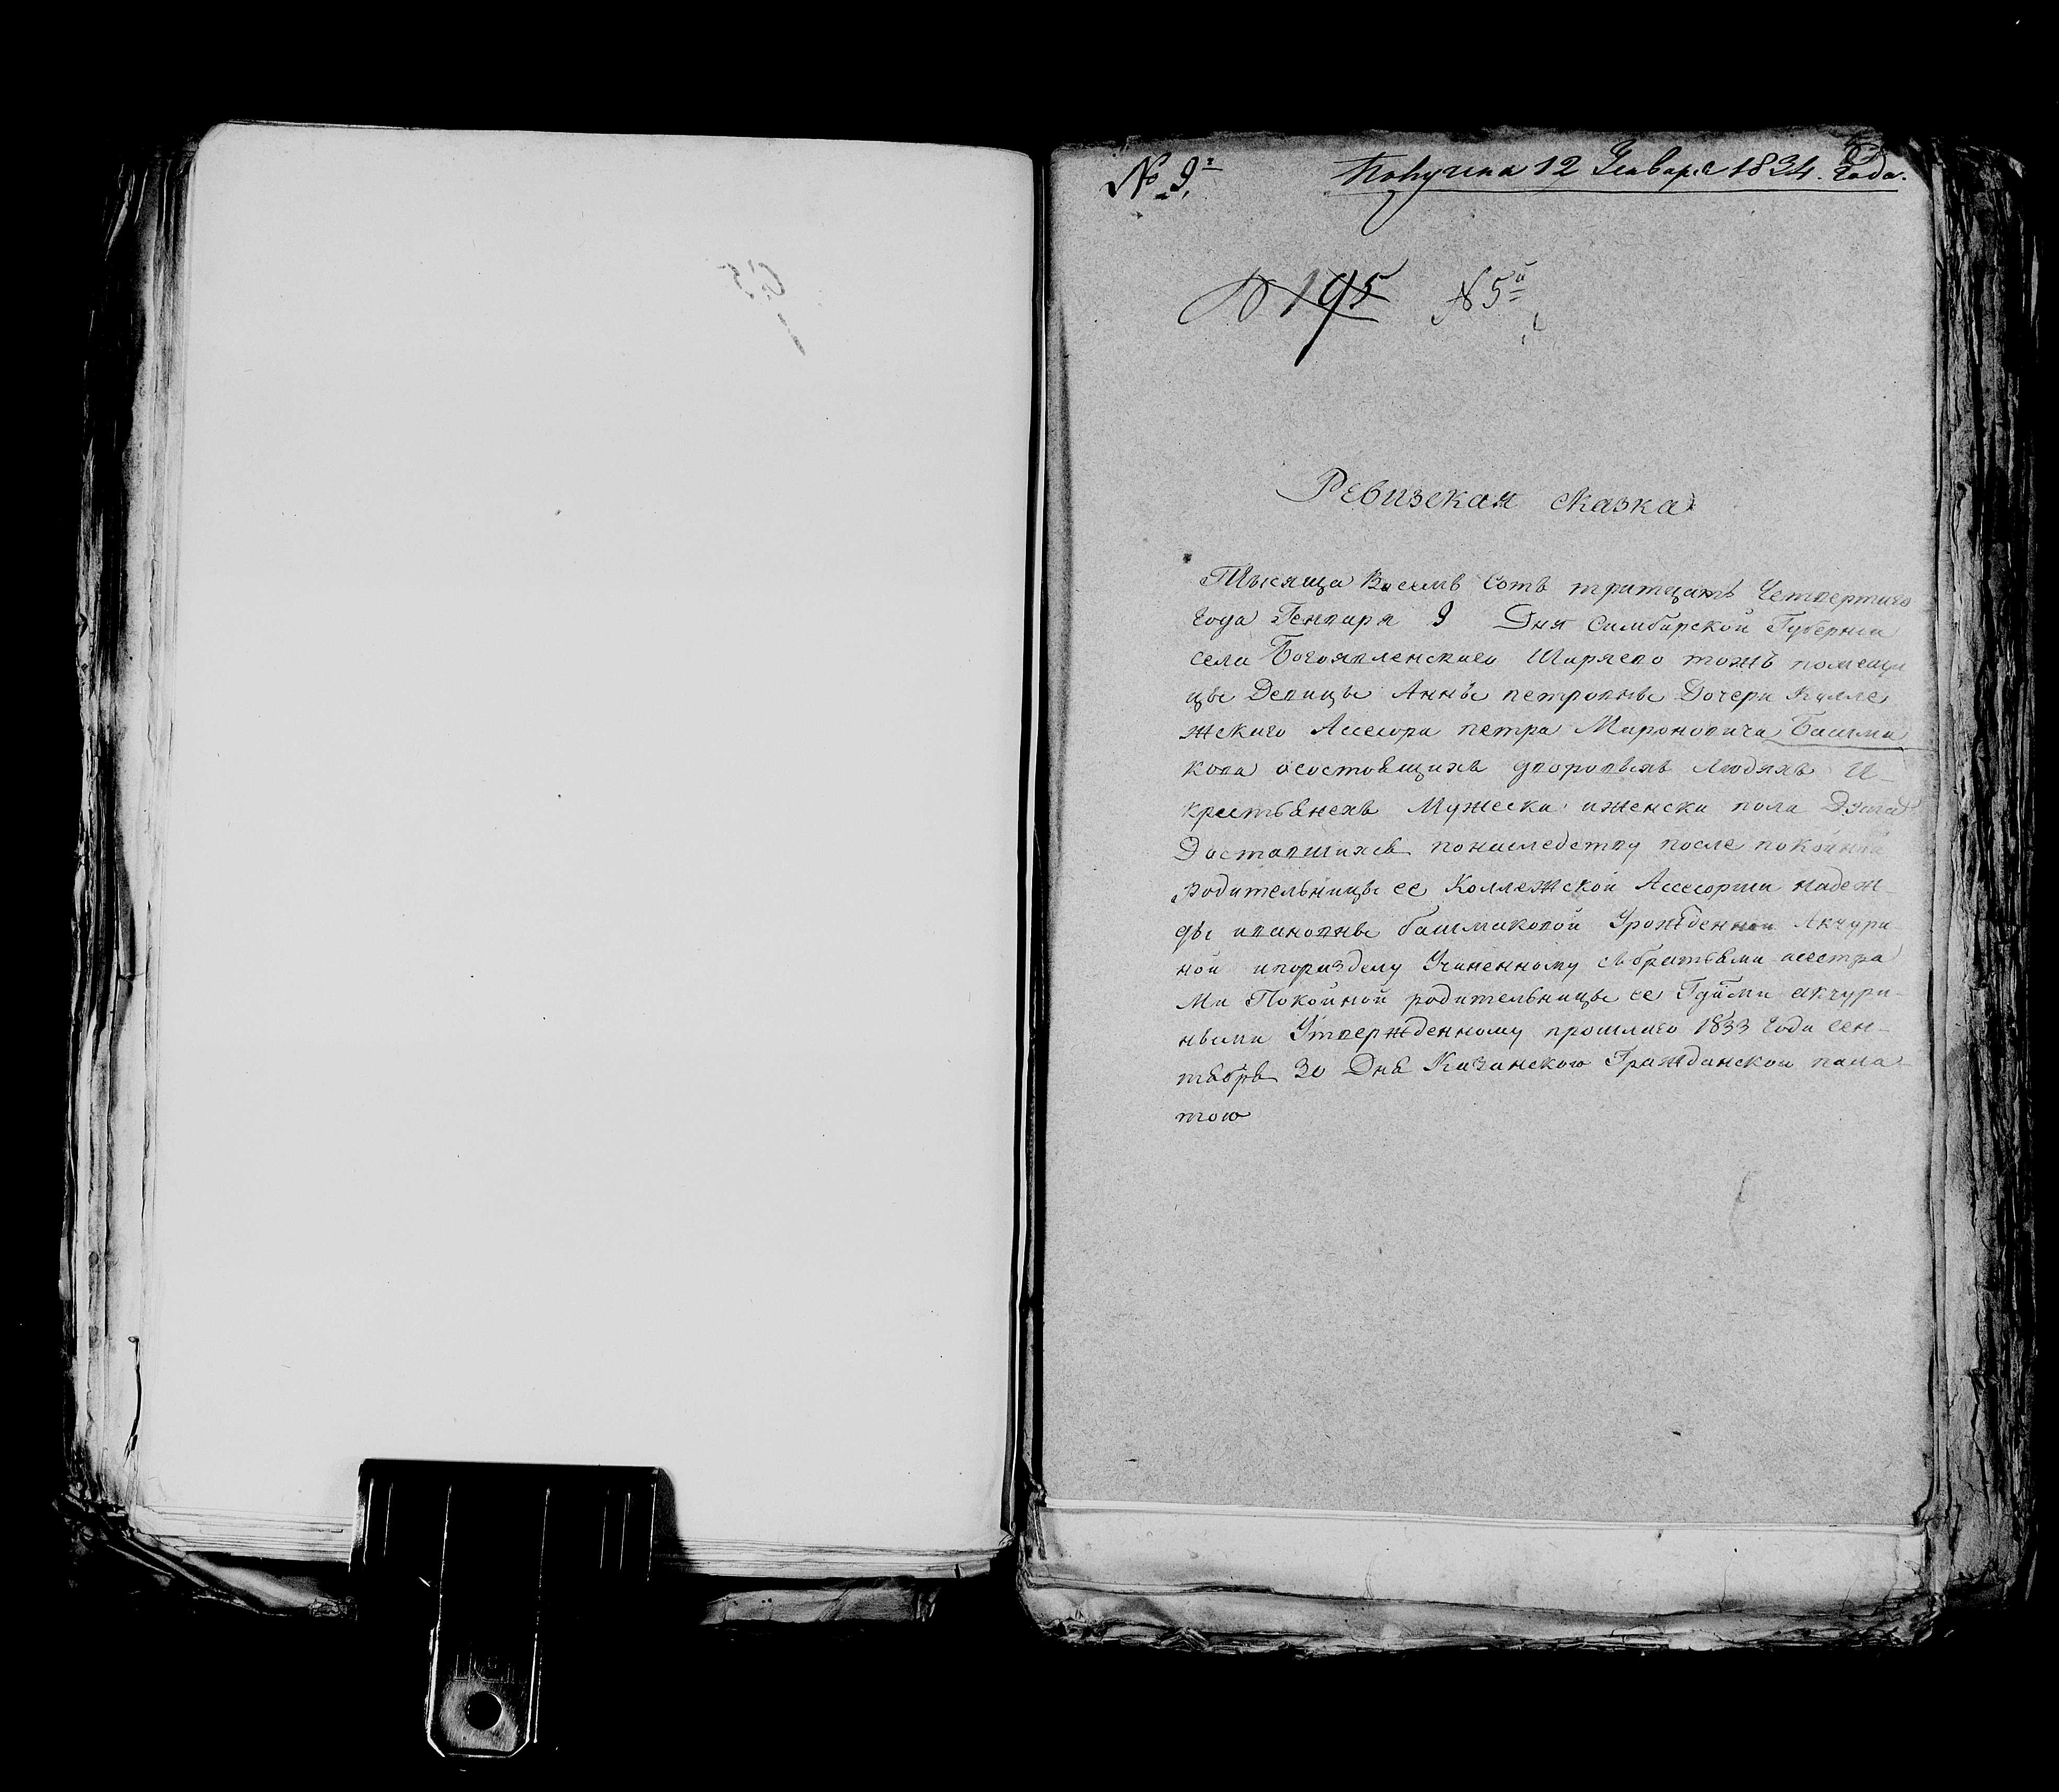 № 9й
Получена 12 Января 1834. Года.
№ 195 № 5й
Ревизская сказка
Тысяща Восемь Сотъ тритцать Четвертого
Года Генваря 9 Дня Симбирской Губернии
села Богоявленскаго Ширяево тожъ помещи
цы Девицы Анны петровны Дочери Колле
жскаго Асесора петра Мироновича Башма
кова осостоящихъ дворовыхъ людяхъ и
крестьянехъ Мужеска иженска пола Душъ
Доставшихся понаследству после покойной
родительницы ее Коллежской Асесорши надеж
ды ивановны башмаковой Урожденной Акчури
ной ипоразделу Учиненному събратьями исестра
Ми Покойной родительницы ее Гдами акчури-
ными Утвержденному прошлаго 1833 Года сен-
тября 30 Дня Казанскою Гражданскою пала
тою